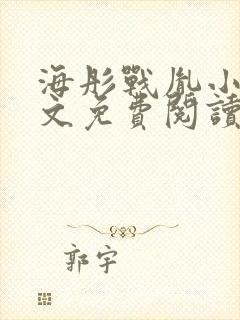 海彤戰胤小
文免費閱讀
郭宇